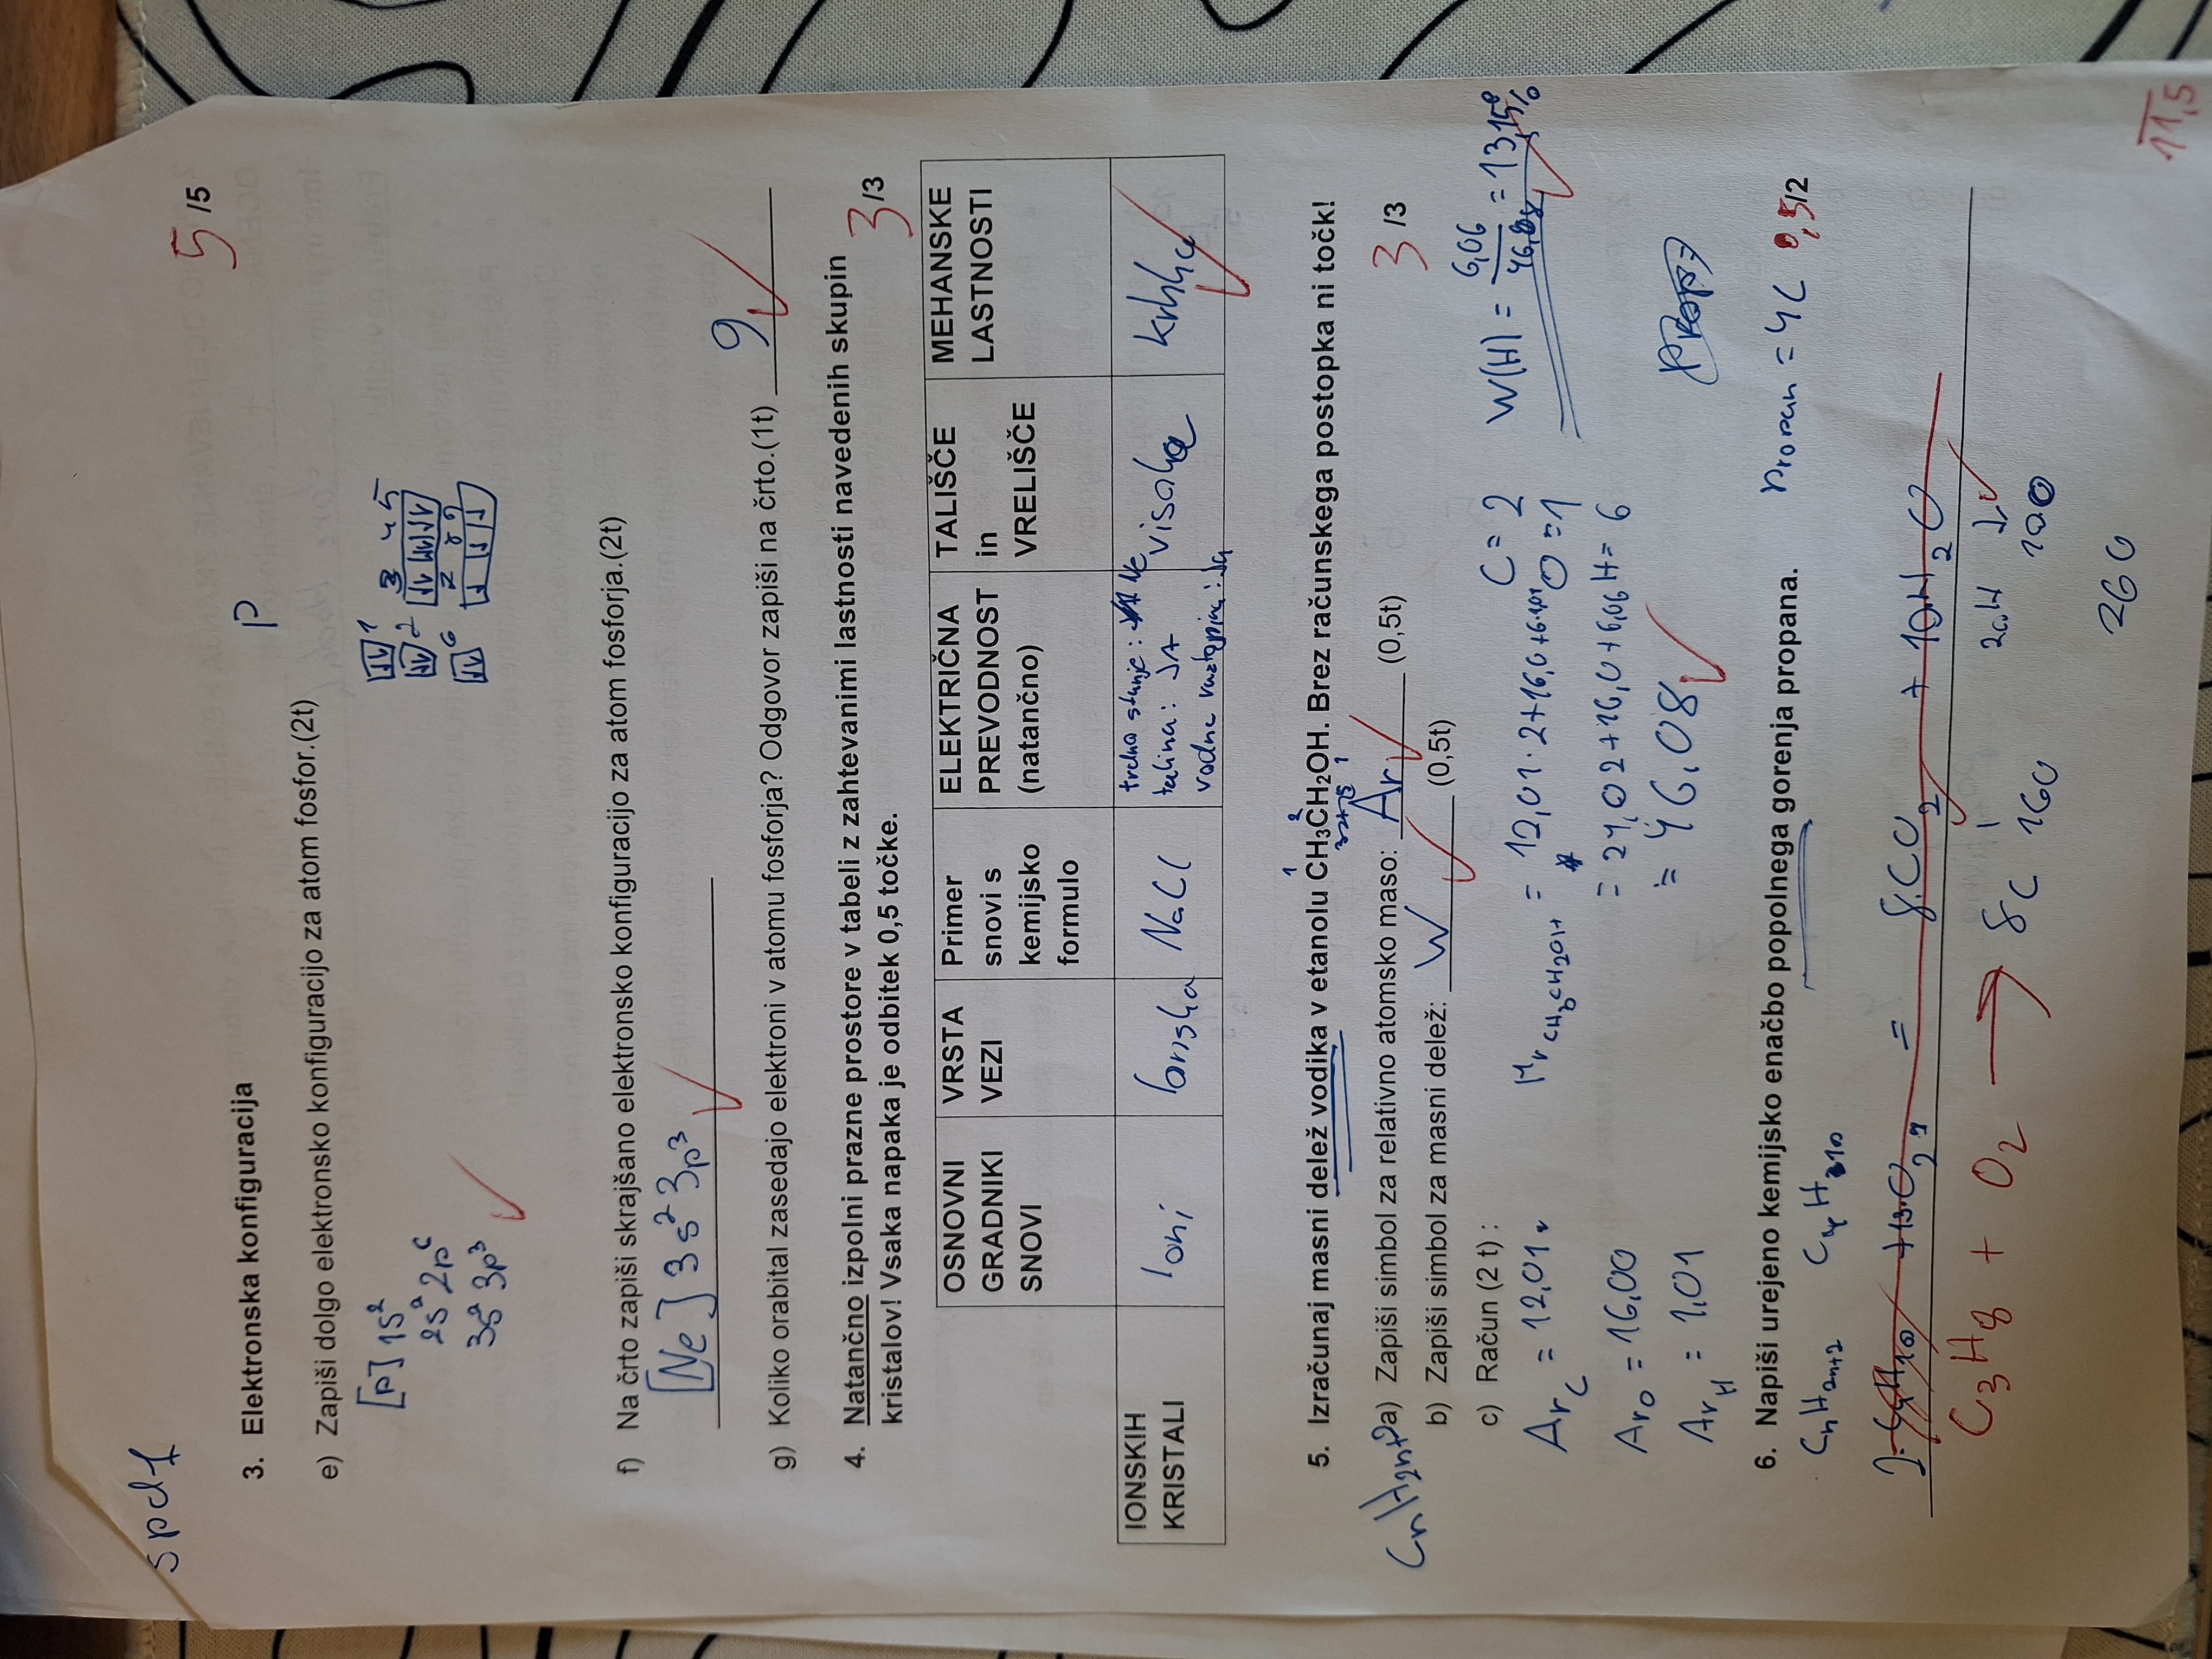 spdf
5 /5
3. Elektronska konfiguracija
P
e) Zapiši dolgo elektronsko konfiguracijo za atom fosfor.(2t)
[P] 1s²
2s² 2p⁶
3s² 3p³
1
2 3 4 5
6 7 8 9
f) Na črto zapiši skrajšano elektronsko konfiguracijo za atom fosforja.(2t)
[Ne] 3s² 3p³
g) Koliko orabital zasedajo elektroni v atomu fosforja? Odgovor zapiši na črto.(1t) 9
4. Natančno izpolni prazne prostore v tabeli z zahtevanimi lastnosti navedenih skupin
kristalov! Vsaka napaka je odbitek 0,5 točke.
3 /3
OSNOVNI GRADNIKI SNOVI
VRSTA VEZI
Primer snovi s kemijsko formulo
ELEKTRIČNA PREVODNOST (natančno)
TALIŠČE in VRELIŠČE
MEHANSKE LASTNOSTI
IONSKIH KRISTALI
Ioni
Ionska
NaCl
trdno stanje: Ne
talina: JA
vodna raztopina: Ja
visoka
krhka
5. Izračunaj masni delež vodika v etanolu CH₃CH₂OH. Brez računskega postopka ni točk!
1 2
3+2=5 1
CnH2n+2
a) Zapiši simbol za relativno atomsko maso: Ar (0,5t)
3 /3
b) Zapiši simbol za masni delež: W (0,5t)
c) Račun (2 t) :
Ar C = 12,01
Mr CH₃CH₂OH = 12,01·2+16,0+6·1,01
C = 2
O = 1
W(H) = 6,06/46,08 = 13,15%
= 24,02+16,0+6,06
H = 6
Ar O = 16,00
= 46,08
Ar H = 1,01
6. Napiši urejeno kemijsko enačbo popolnega gorenja propana.
Propan = 4C
0,5/2
CnH2n+2 C4H10
2·C4H10 + 13·O2 = 8·CO2 + 10·H2O
C₃H₈ + O₂ →
8C 16O
20H
10O
26O
11,5